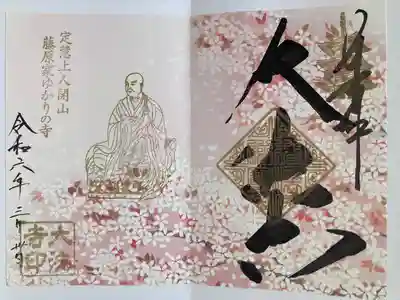 奉拝
定惠上人開山
藤原家ゆかりの寺
令和六年三月卅日
大法
寺印